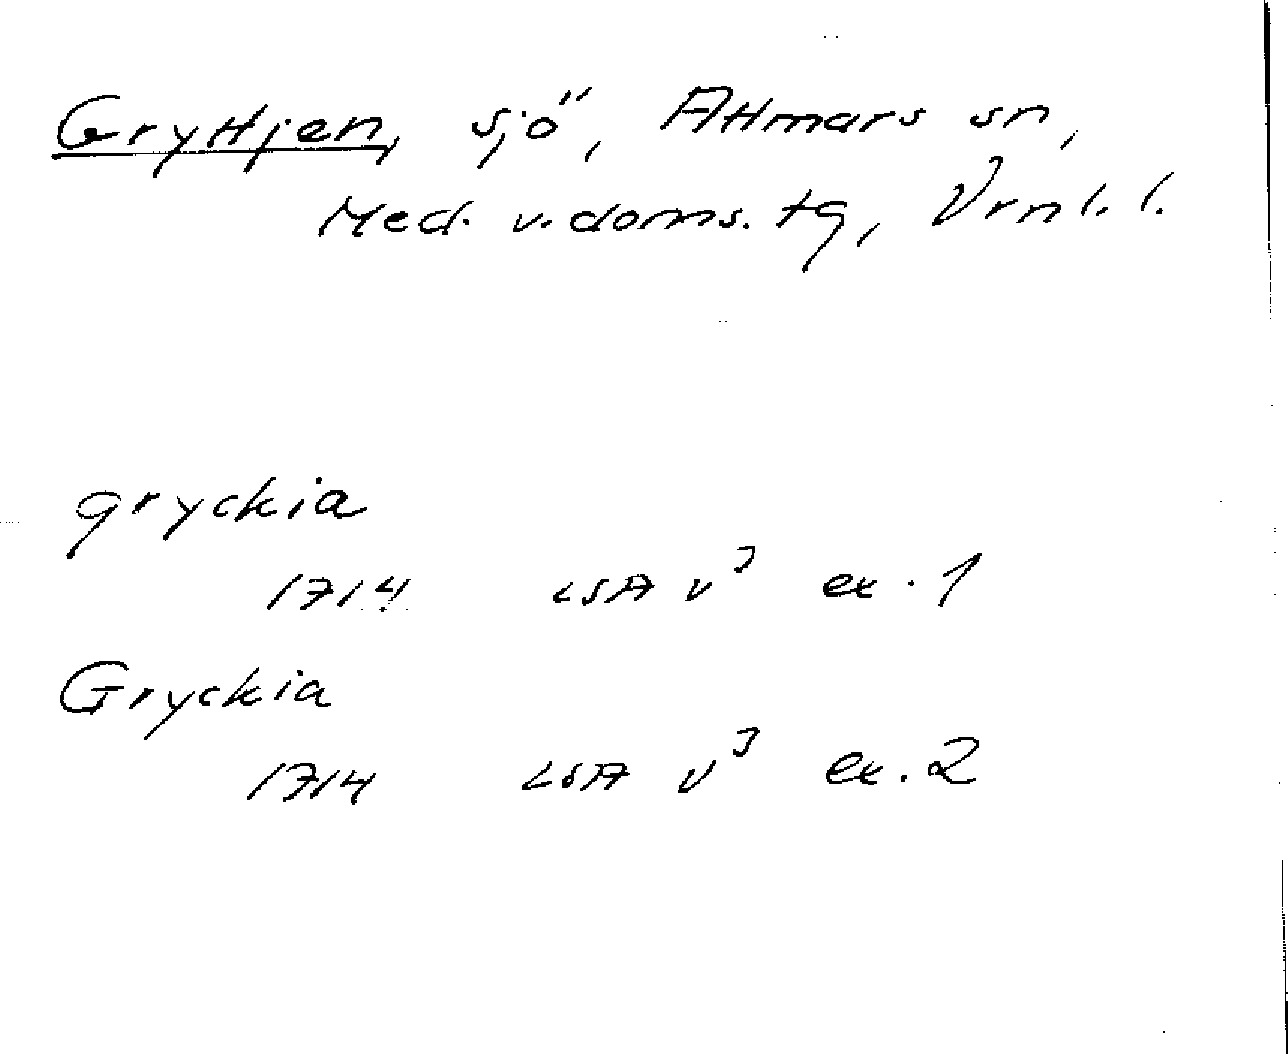 Gryttjen, sjö, Attmars sn,
Med. v. doms. tg, Vrnl. l.
gryckia
1714 LSA V³ ex. 1
Gryckia
1714 LSA V³ ex. 2